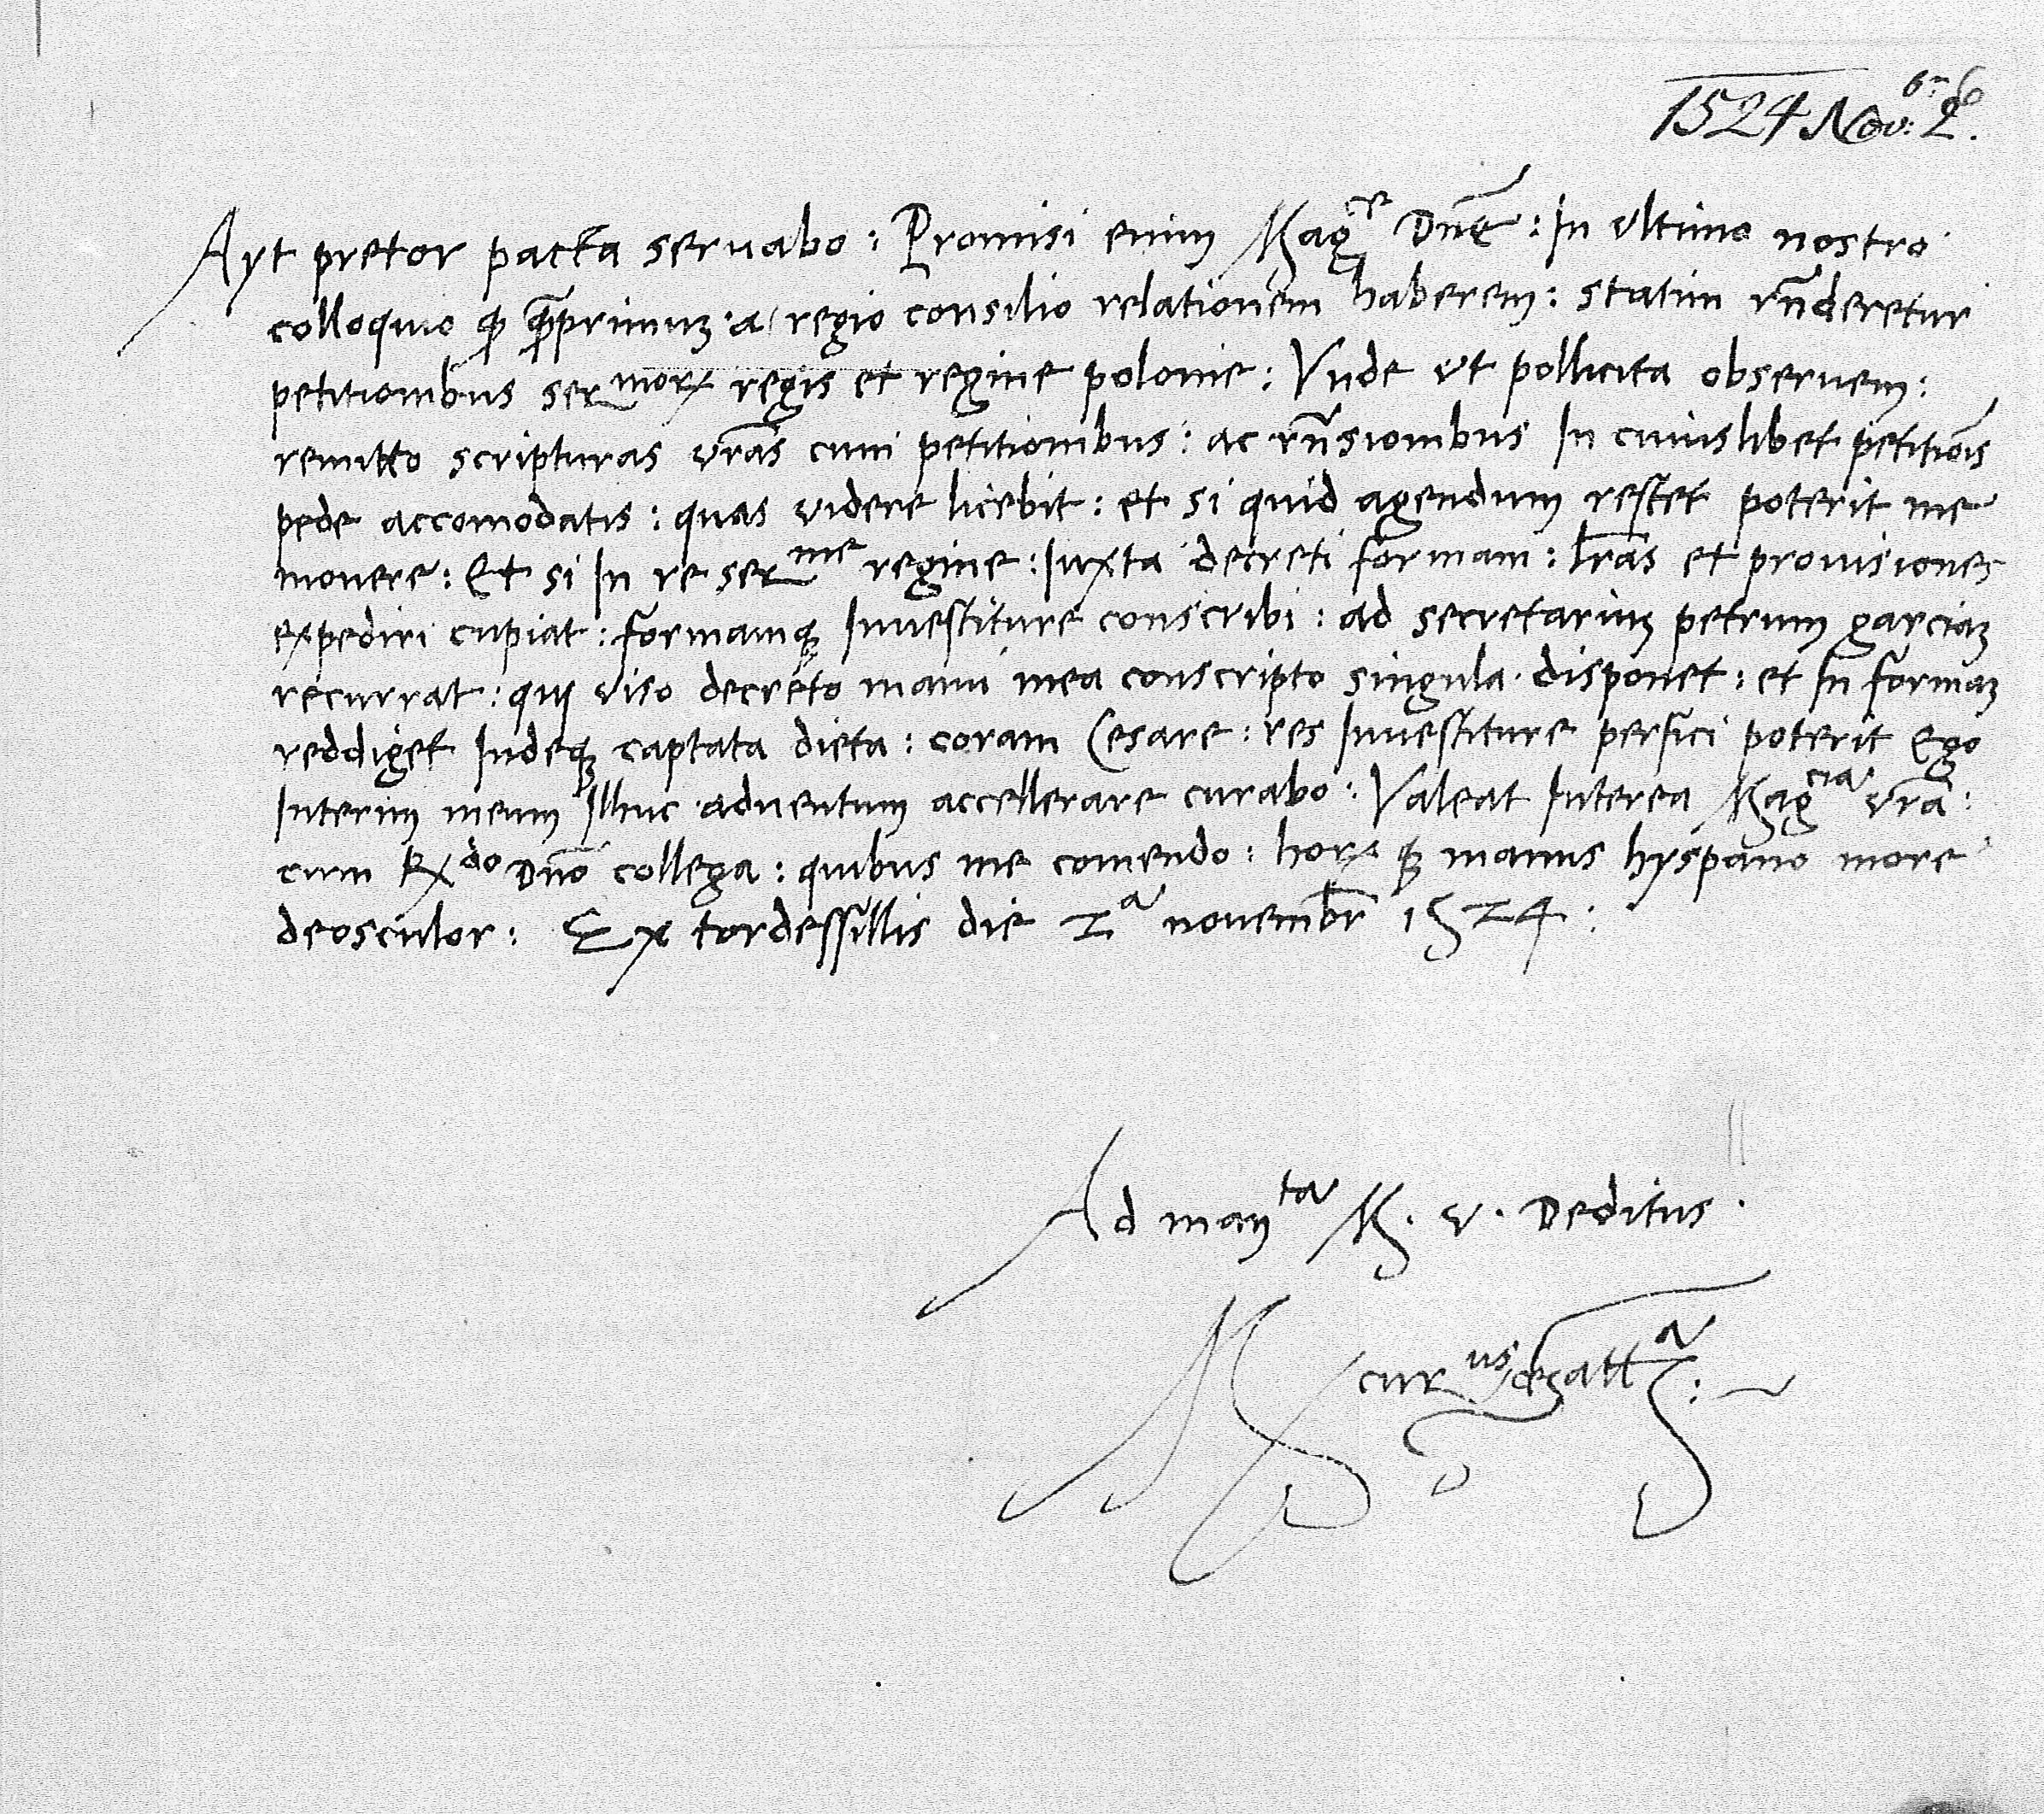 1524 Nov: 2.
Ayt pretor pacta seruabo: Promisi enim Mag.ce Dn̄e: In vltimo nostro
colloquio qꝫ qͣmprimuꝫ a regio consilio relationem haberem: statim rn̄deretur
petitionibus ser.morꝝ regis et regine polonie: Vnde vt pollicita obseruem:
remitto scripturas vr̄as cum petitionibus: ac rn̄sionibus In cuiuslibet petitiōis
pede accomodatis: quas videre licebit: et si quid agendum restet poterit me
monere: Et si In re ser.me regine: Iuxta decreti formam: lr̄as et prouisiones
expediri cupiat: formamqꝫ Inuestiture conscribi: ad secretariuꝫ petrum garciaꝫ
recurrat: qui viso decreto manu mea conscripto singula disponet: et In formaꝫ
reddiget Indeqꝫ captata dieta: coram Cesare: res Inuestiture perfici poterit Ego
Interim meum Illuc aduentum accellerare curabo: Valeat Interea Mag.cia vr̄a:
cum Rx.do Dn̄o collega: quibus me comendo: horꝝ qꝫ manus hyspano more
deosculor: Ex tordessillis die 2a nouembr̄ 1524:
Ad man.ta M. v. Deditus.
Mercur.us de gatt.a: